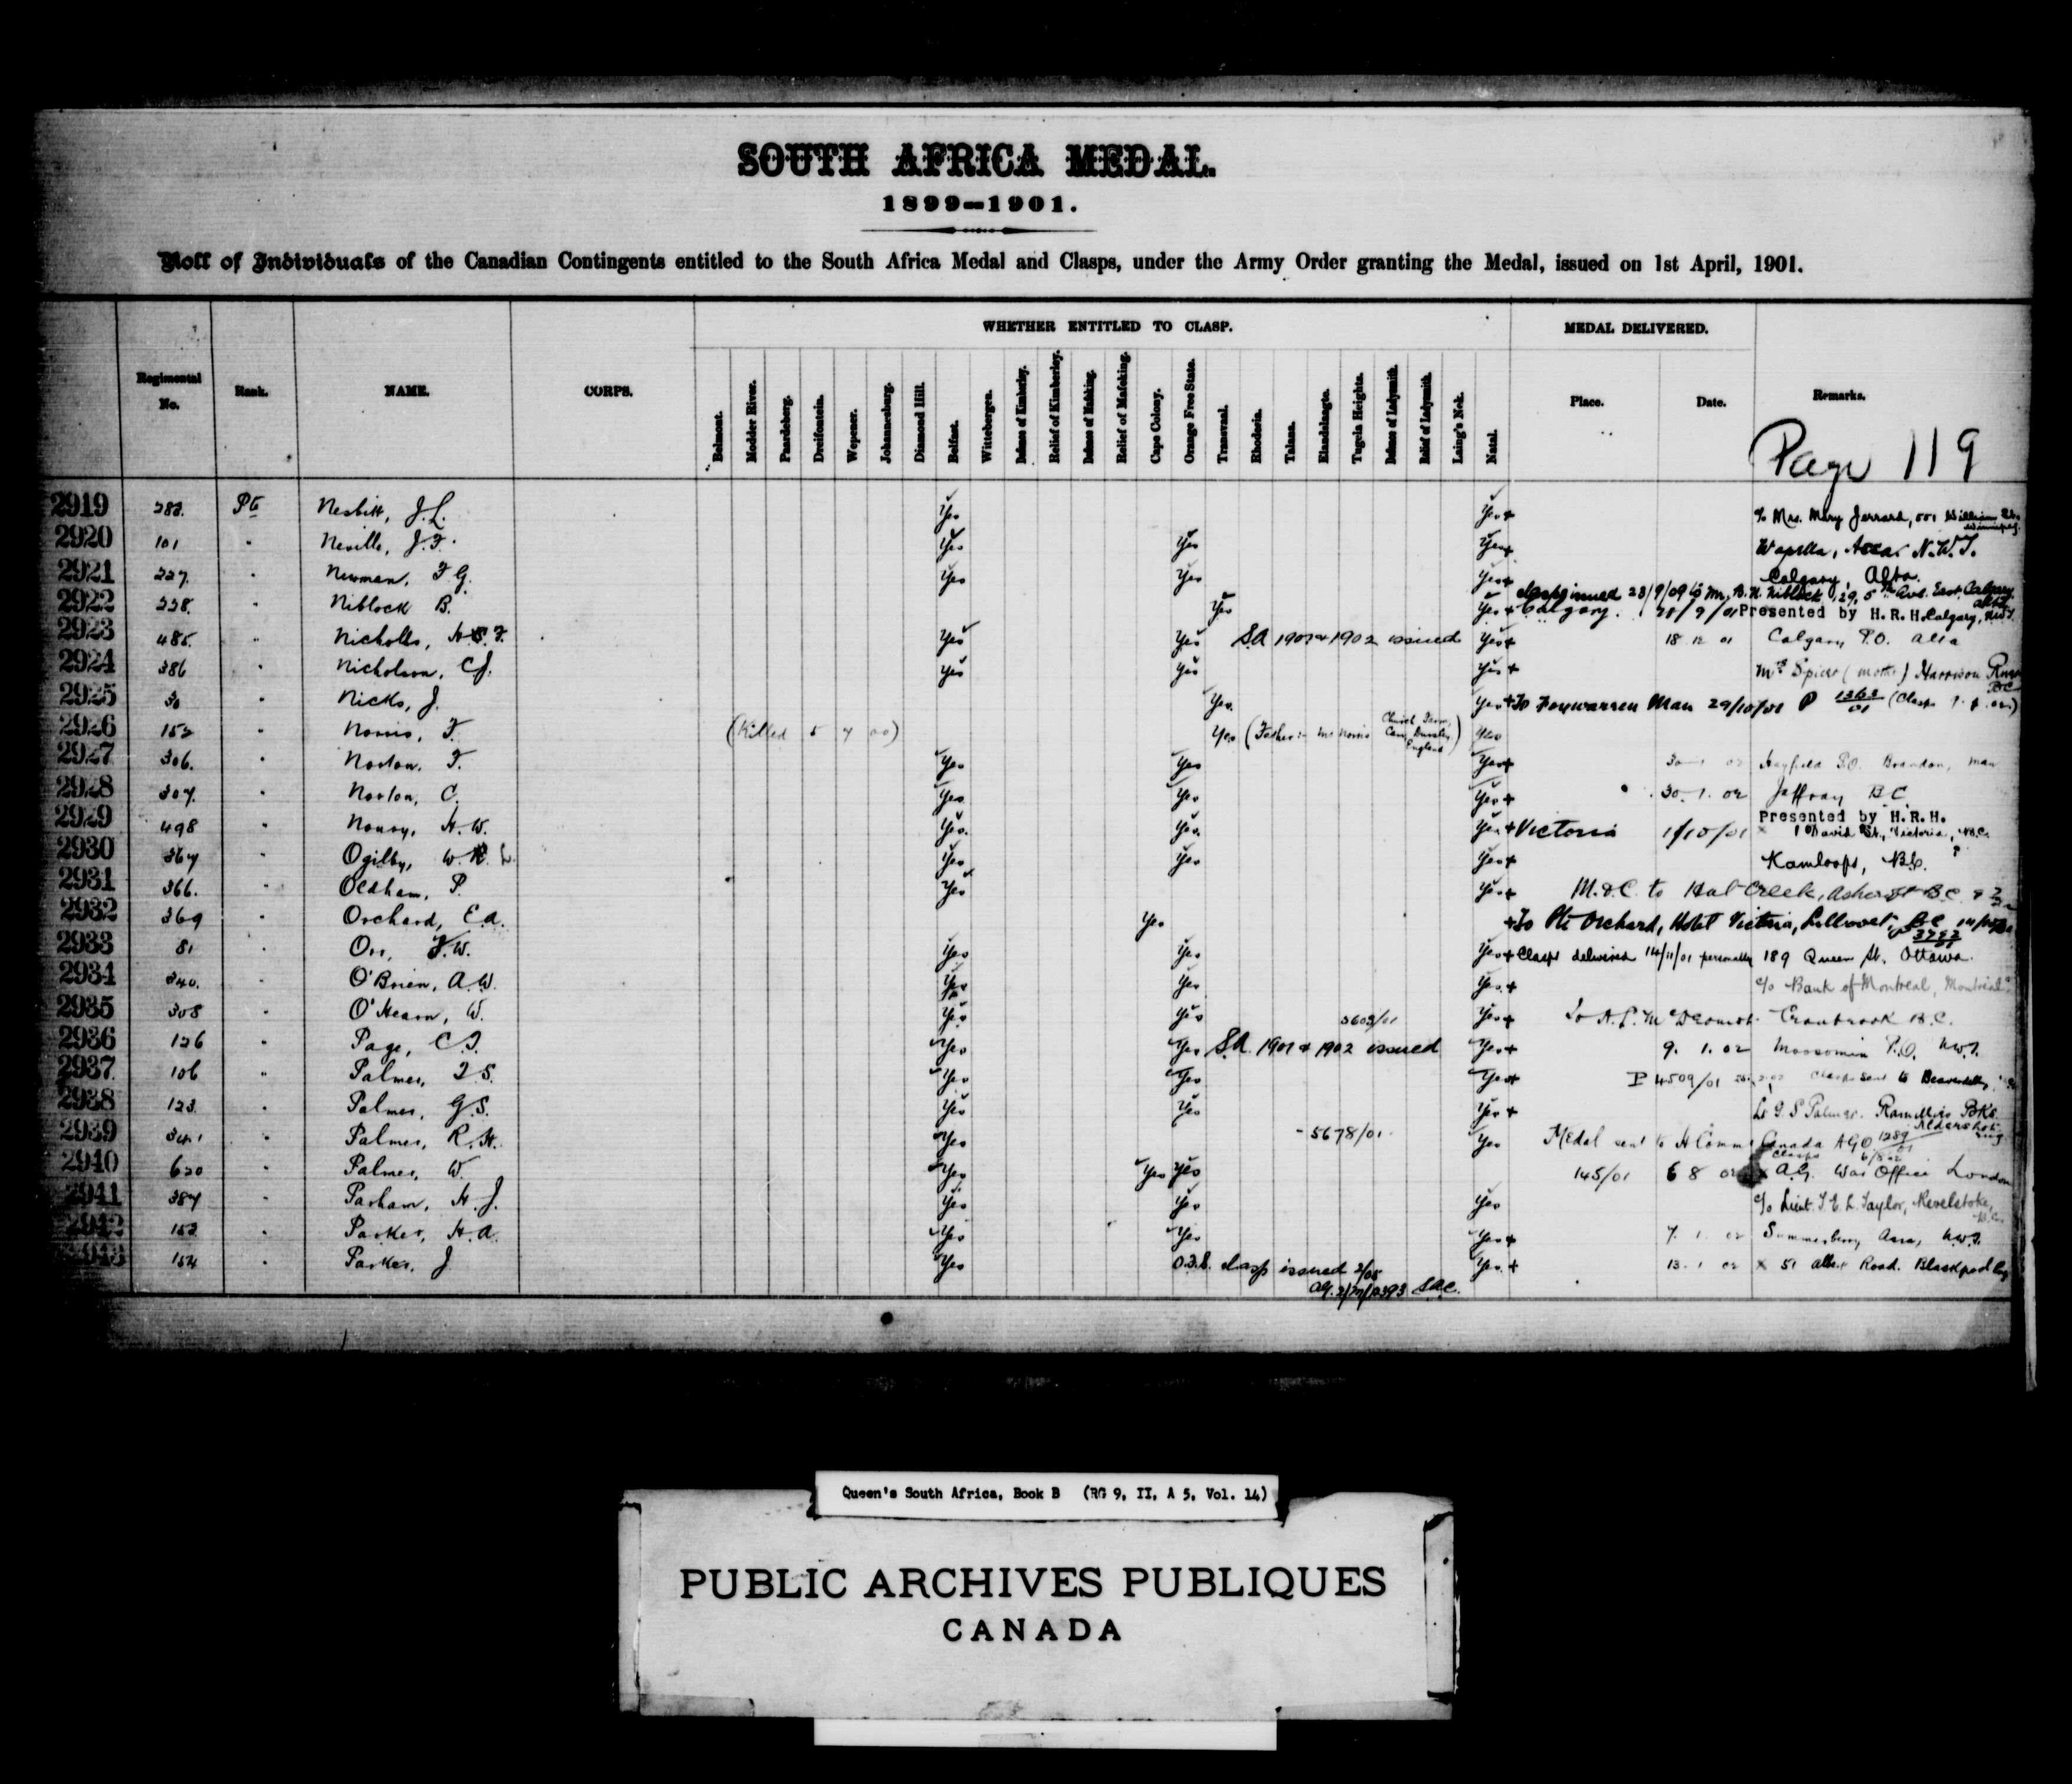 SOUTH AFRICA MEDAL.
1899-1901.
Roll of Individuals of the Canadian Contingents entitled to the South Africa Medal and Clasps, under the Army Order granting the Medal, issued on 1st April, 1901.
WHETHER ENTITLED TO CLASP. MEDAL DELIVERED.
Regimental No. Rank. NAME. CORPS. Belmont. Modder River. Paardeberg. Dreifontein. Wepener. Johannesburg. Diamond Hill. Belfast. Wittebergen. Defence of Kimberley. Relief of Kimberley. Defence of Mafeking. Relief of Mafeking. Cape Colony. Orange Free State. Transvaal. Rhodesia. Talana. Elandslaagte. Tugela Heights. Defence of Ladysmith. Relief of Ladysmith. Laing's Nek. Natal. Place. Date. Remarks.
Page 119
2919 283. Pte Nesbitt, J.L. Yes Yes+ c/o Mrs. Mary Jerrard, William Winnipeg.
2920 101 " Neville, J.F. Yes Yes Yes+ Wapella, Assa. N.W.T.
2921 227. " Newman, F.G. Yes Yes Yes+ Calgary, Alta.
clasp issued 23/9/09 to Mr. B.N. Niblock, 29, 5th Ave. East, Calgary, Alta
2922 228. " Niblock B. Yes Yes+ Calgary. Presented by H.R.H. Calgary, NWT.
2923 485. " Nicholls, H.S.F Yes Yes SA 1901 & 1902 issued Yes+ 18 12 01 Calgary P.O. Alta
2924 386 " Nicholson, C.J. Yes Yes Yes+ Mrs Spicer (mother) Harrison River BC
2925 30 " Nicks, J. Yes. Yes+ To Foxwarren Man 29/10/01 P 1362/01
2926 152 " Norris, F. (Killed 5 7 00) Yes (Father:- Mr Norris Church Farm, Cam, Dursley, England) Yes
2927 306. " Norton, F. Yes Yes Yes+ 30 1 02 Hayfield P.O. Brandon, Man
2928 307. " Norton, C. Yes Yes Yes+ 30. 1. 02 Jaffray B.C.
2929 498 " Noury, H.W. Yes. Yes. Yes+ Victoria 1/10/01 Presented by H.R.H.
x David St., Victoria, B.C.
2930 367 " Ogilby, W.R. L. Yes Yes Yes+ Kamloops, B.C.
2931 366. " Oldham, P. Yes Yes+ M.&C. to Hat Creek, Ashcroft B.C.
2932 369 " Orchard, E.A. Yes +To Pte Orchard, Hotel Victoria, Lillooet, B.C.
2933 81 " Orr, F.W. Yes Yes Yes+ Clasps delivered 14/11/01 personally 189 Queen St. Ottawa.
2934 340. " O'Brien, A.W. Yes Yes Yes.+ c/o Bank of Montreal, Montreal
2935 308 " O'Hearn, W. Yes Yes 3603/01 Yes+ To A.P. McDermot Cranbrook B.C.
2936 126 " Page, C.T. Yes Yes S.A. 1901 & 1902 issued Yes+ 9. 1. 02 Moosomin P.O. NWT.
2937 106 " Palmer, F.S. Yes Yes Yes+ P 4509/01 Clasps sent to Beaverdell,
2938 123. " Palmer, G.S. Yes Yes Yes+ Lt G.S Palmer. Ramillies Bks. Aldershot Eng.
2939 341 " Palmer, R.H. Yes 5678/01 Yes Medal sent to H Comm Canada AGO 1289/01
2940 620 " Palmer, W. Yes Yes Yes 145/01 6 8 02 Clasps 6/8/02 x A.G. War Office London
2941 387 " Parham, H.J. Yes Yes Yes c/o Lieut. T.E.L. Taylor, Revelstoke, B.C.
2942 153. " Parker, H.A. Yes Yes Yes+ 7. 1. 02 Summerberry Assa, NWT.
2943 154 " Parker, J Yes O.F.S. clasp issued 2/05 Yes.+ 13. 1 02 x 51 Albert Road. Blackpool Eng
S.A.C.
Queen's South Africa, Book B (RG 9, II, A 5, Vol. 14)
PUBLIC ARCHIVES PUBLIQUES
CANADA